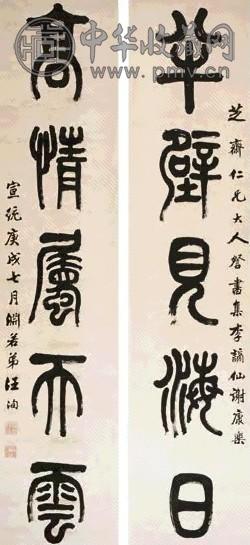 中华收藏网
半壁見海日
芝齋仁兄大人詧書集李謫仙謝康樂
高情屬天雲
宣統庚戌七月淵若弟汪洵